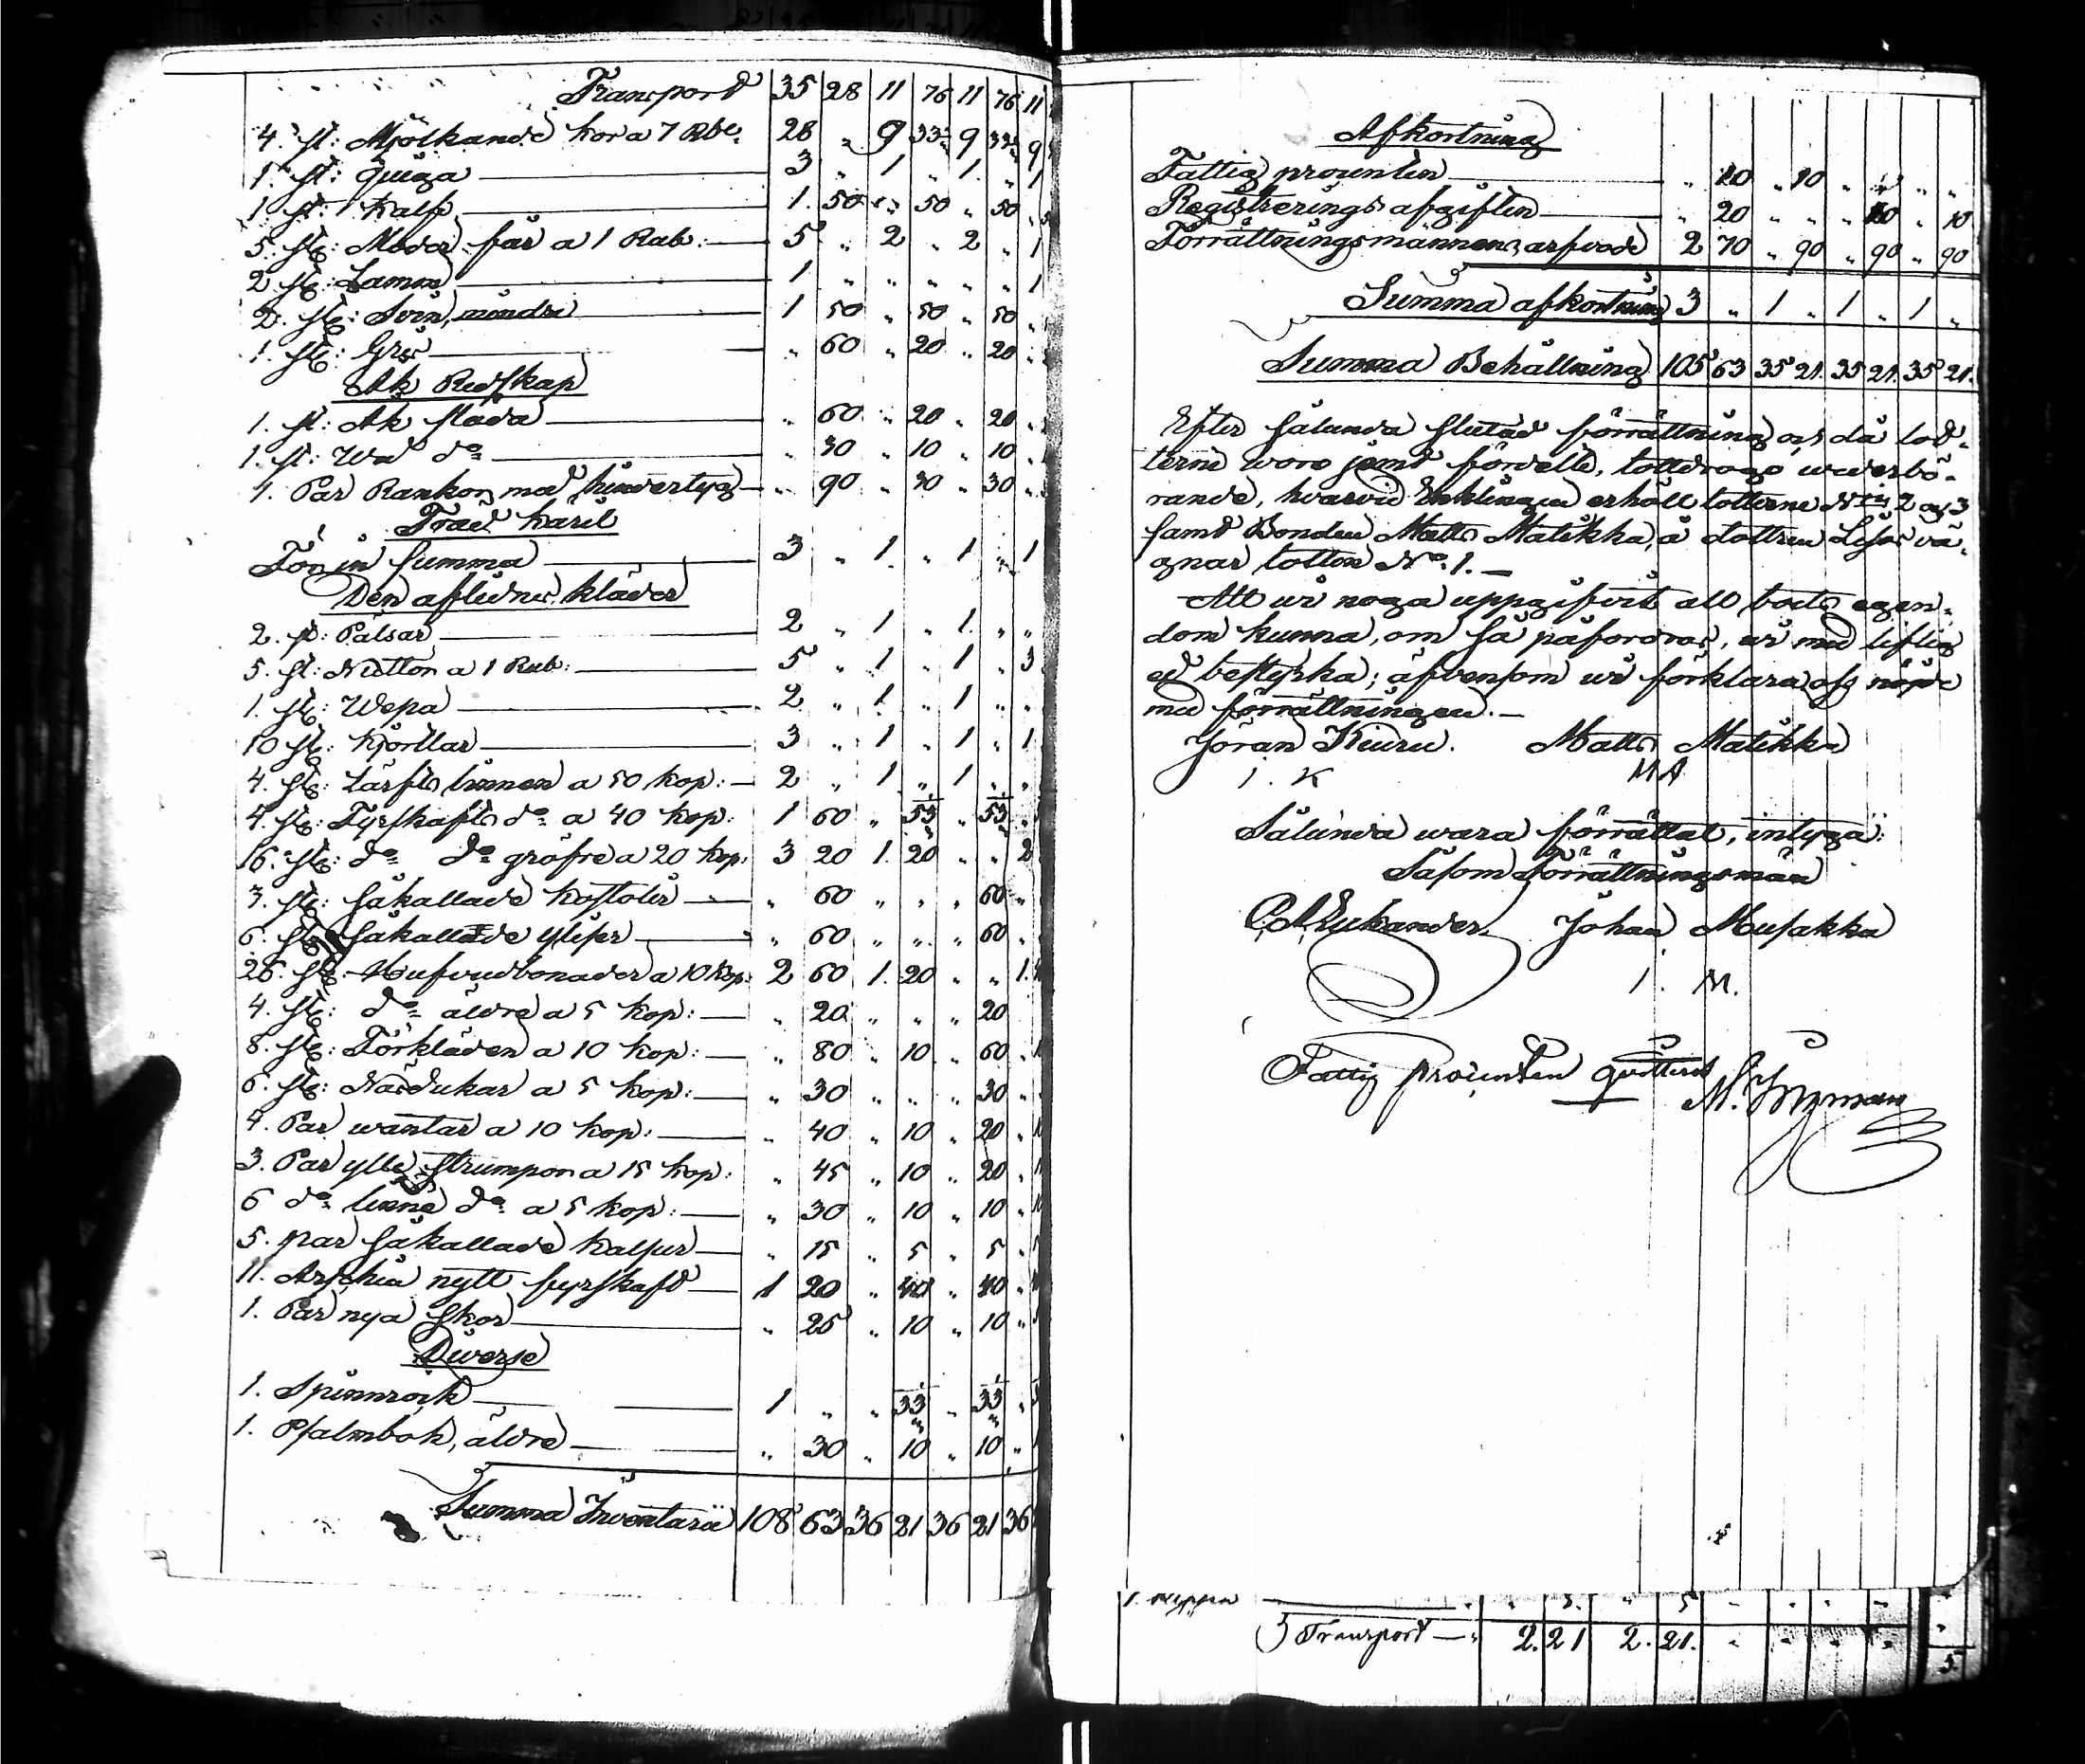 Transport 35 28 11 76 11 76 11
4. st: Mjölkande kor a 7 Rbl. 28 „ 9 33 9 33 9
1. st: Quiga 3 „ 1 „ 1 „ 1
1. st: Kalf 1. 50 „ 50 „ 50 „
5. st: Moder får a 1 Rub: 5 „ 2 „ 2 „ 1
2. st: Lamm 1 „ „ „ „ „ 1
2. st: Svin, mindre 1 50 „ 50 „ 50 „
1. st: Gris „ 60 „ 20 „ 20 „
Åk Redskap
1. st: Åk släda „ 60 „ 20 „ 20 „
1. st: Wed do „ 30 „ 10 „ 10 „
1. Par Rankor med hindertyg „ 90 „ 30 „ 30 „
Träd Käril
För in summa 3 „ 1 „ 1 „ 1
Den aflidnes kläder
2. st: Pälsar 2 „ 1 „ 1. „ „
5. st: Nutton a 1 Rub: 5 „ 1 „ 1 „ 3
1. st: Wepa 2 „ 1 „ 1 „ „
10 st: Kjortlar 3 „ 1 „ 1 „ 1
4. st: Lärfts linnen a 50 kop: 2 „ 1 „ 1 „ „
4. st: Fyrskafts do a 40 kop: 1 60 „ 53 „ 53 „
16. st: do do gröfre a 20 kop: 3 20 1. 20 „ „ 2
3. st: såkallade Kostoler „ 60 „ „ „ 60 „
6. st: såkallade „ 60 „ „ „ 60 „
26. st: Hufvudbonader a 10 kop: 2 60 1. 20 „ „ 1.
4. st: do äldre a 5 kop: „ 20 „ „ „ 20
8. st: Förkläden a 10 kop: „ 80 „ 10 „ 60 „
6. st: Näsdukar a 5 kop: „ 30 „ „ „ 30 „
4. Par wantar a 10 kop: „ 40 „ 10 „ 20 „
3. Par ylle strumpor a 15 kop: „ 45 „ 10 „ 20 „
6 do linne do a 5 kop: „ 30 „ 10 „ 10 „
5. par såkallade Kalsur „ 15 „ 5 „ 5 „
11. Arschin nytt fyrskaft 1 20 „ 40 „ 40 „
1. Par nya skor „ 25 „ 10 „ 10 „
Diverse
1. Spinnrock 1 „ „ 33 „ 33 „
1. Psalmbok, äldre „ 30 „ 10 „ 10 „
Summa Inventarii 108 63 36 21 36 21 36
Afkortning
Fattig procenten „ 10 „ 10 „ „ „ „
Registrerings afgiften „ 20 „ „ „ 10 „ 10
Förrättningsmännens arfvode 2 70 „ 90 „ 90 „ 90
Summa afkortning 3 „ 1 „ 1 „ 1 „
Summa Behållning 105 63 35 21. 35 21. 35 21.
Efter sålunda slutad förrättning och då lot-
terne woro jemt fördelte, lottdrogo wederbö-
rande, hvarvid Enklingen erhöll lotterne Nris 2 och 3
samt Bonden Matts Matikka, å dottren Lisas vä-
gnar lotten No 1. —
Att wi noga uppgifvit all boets egen-
dom kunna, om så påfordras, wi med liflig
ed bestyrka; äfvensom wi förklara oss nöjde
med förrättningen. —
Jöran Kiuru. Matts Matikka
I. K MA
Sålunda wara förrättat, intyga:
Såsom Förrättningsmän
Johan Musakka
I. M.
Fattig procenten quitteras
1.
Transport — 2. 21 2. 21. „ „ „ „
5